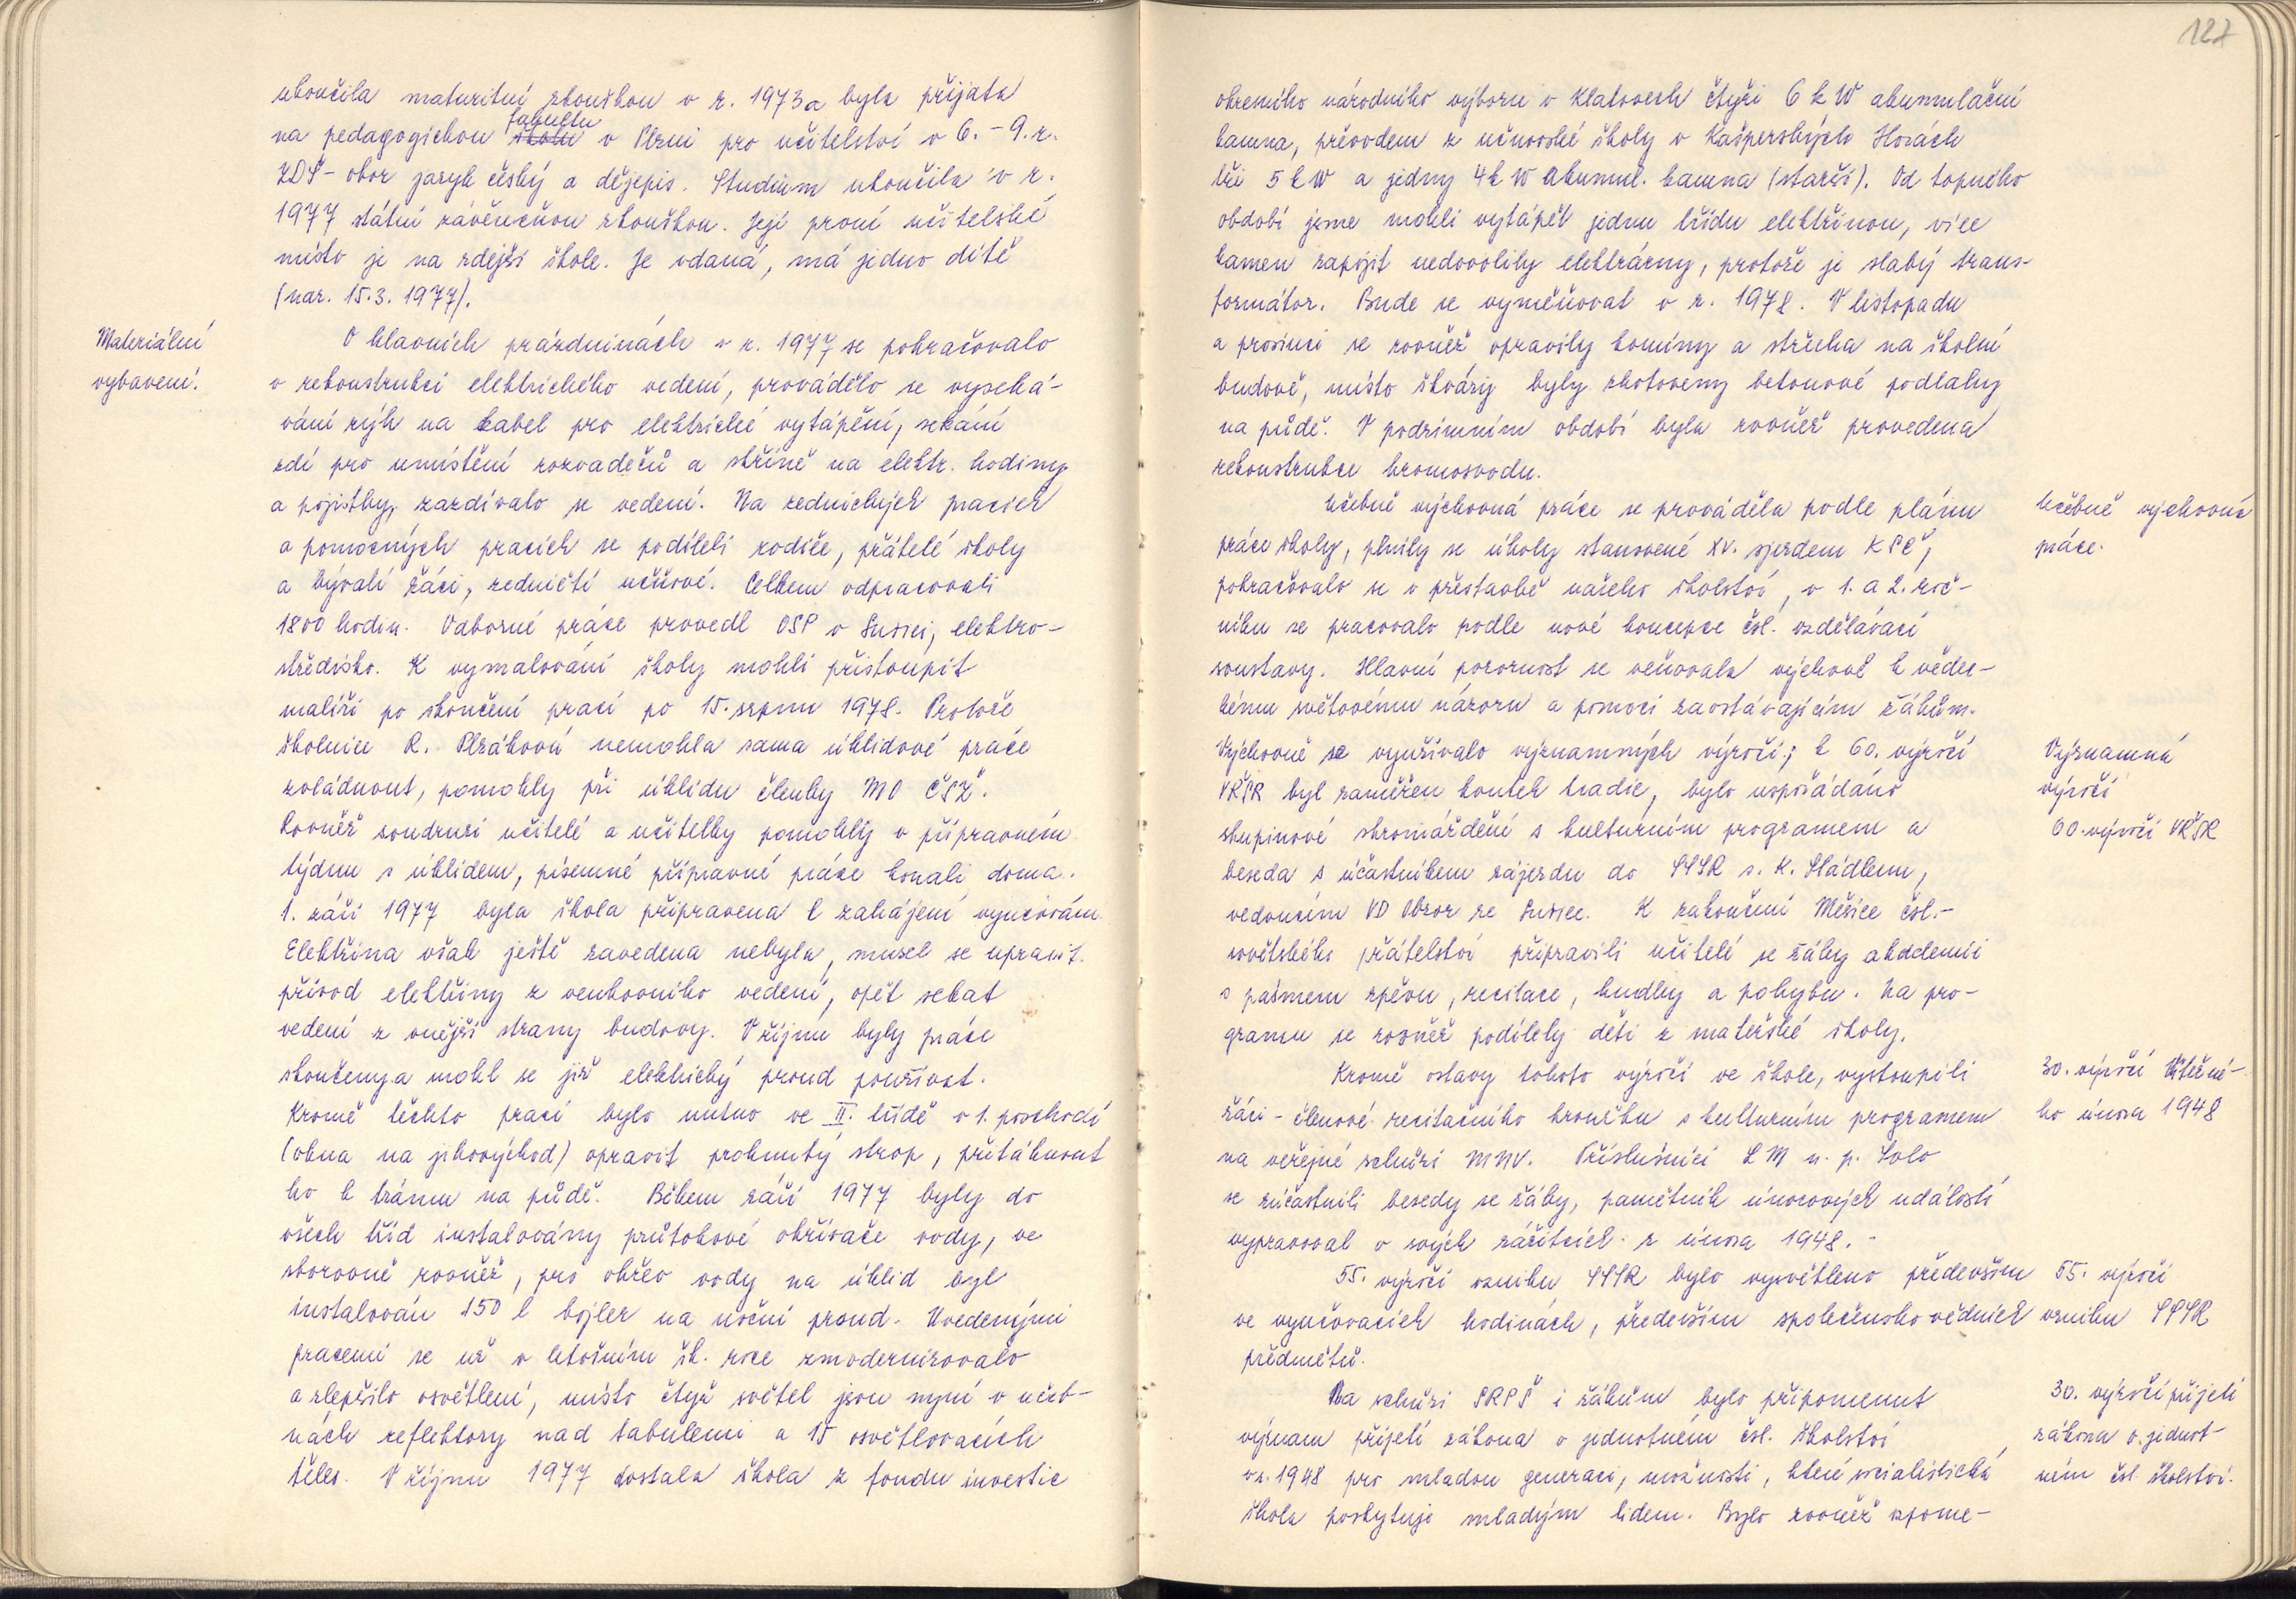 127
ukončila maturitní zkouškou v r. 1973 a byla přijata
na pedagogickou fakultu v Plzni pro učitelství v 6.-9. r.
ZDŠ - obor jazyk český a dějepis. Studium ukončila v r.
1977 státní závěrečnou zkouškou. Její první učitelské
místo je na zdejší škole. Je vdaná, má jedno dítě
(nar. 15.3. 1977).
Materiální
vybavení.
O hlavních prázdninách v r. 1977 se pokračovalo
v rekonstrukci elektrického vedení, provádělo se vyseká-
vání rýh na kabel pro elektrické vytápění, sekání
zdí pro umístění rozvaděčů a skříně na elektr. hodiny
a pojistky, zazdívalo se vedení. Na zednických pracích
a pomocných pracích se podíleli rodiče, přátelé školy
a bývalí žáci, zedničtí učňové. Celkem odpracovali
1800 hodin. Odborné práce provedl OSP v Sušici, elektro-
středisko. K vymalování školy mohli přistoupit
malíři po skončení prací po 15. srpnu 1978. Protože
školnice R. Plzáková nemohla sama úklidové práce
zvládnout, pomohly při úklidu členky MO ČSŽ.
Rovněž soudruzi učitelé a učitelky pomohly v přípravném
týdnu s úklidem, písemné přípravné práce konali doma.
1. září 1977 byla škola připravena k zahájení vyučování.
Elektřina však ještě zavedena nebyla, musel se upravit
přívod elektřiny z venkovního vedení, opět sekat
vedení z vnější strany budovy. V říjnu byly práce
skončeny a mohl se již elektrický proud používat.
Kromě těchto prací bylo nutno ve II. třídě v 1. poschodí
(okna na jihovýchod) opravit prohnutý strop, přitáhnout
ho k trámu na půdě. Během září 1977 byly do
všech tříd instalovány průtokové ohřívače vody, ve
sborovně rovněž, pro ohřev vody na úklid byl
instalován 150 l bojler na noční proud. Uvedenými
pracemi se už v letošním šk. roce zmodernizovalo
a zlepšilo osvětlení, místo čtyř světel jsou nyní v učeb-
nách reflektory nad tabulemi a 15 osvětlovacích
těles. V říjnu 1977 dostala škola z fondu investic
okresního národního výboru v Klatovech čtyři 6 kW akumulační
kamna, převodem z učňovské školy v Kašperských Horách
tři 5 kW a jedny 4 kW akumul. kamna (starší). Od topného
období jsme mohli vytápět jednu třídu elektřinou, více
kamen zapojit nedovolily elektrárny, protože je slabý trans-
formátor. Bude se vyměňovat v r. 1978. V listopadu
a prosinci se rovněž opravily komíny a střecha na školní
budově, místo škváry byly zhotoveny betonové podlahy
na půdě. V podzimním období byla rovněž provedena
rekonstrukce hromosvodu.
Učebně výchovná práce se prováděla podle plánu
práce školy, plnily se úkoly stanovené XV. sjezdem KSČ,
pokračovalo se v přestavbě našeho školství, v 1. a 2. roč-
níku se pracovalo podle nové koncepce čsl. vzdělávací
soustavy. Hlavní pozornost se věnovala výchově k vědec-
kému světovému názoru a pomoci zaostávajícím žákům.
Učebně výchovná
práce.
Výchovně se využívalo významných výročí; k 60. výročí
VŘSR byl zaměřen koutek tradic, bylo uspořádáno
skupinové shromáždění s kulturním programem a
beseda s účastníkem zájezdu do SSSR s. K. Sládkem,
vedoucím VD Obzor ze Sušice. K zakončení Měsíce čsl.-
sovětského přátelství připravili učitelé se žáky akademii
s pásmem zpěvu, recitace, hudby a pohybu. Na pro-
gramu se rovněž podílely děti z mateřské školy.
Významná
výročí
60. výročí VŘSR
Kromě oslavy tohoto výročí ve škole, vystoupili
žáci - členové recitačního kroužku s kulturním programem
na veřejné schůzi MNV. Příslušníci LM n. p. Solo
se zúčastnili besedy se žáky, pamětník únorových událostí
vypravoval o svých zážitcích z února 1948.
30. výročí Vítězné-
ho února 1948
55. výročí vzniku SSSR bylo vysvětleno především
ve vyučovacích hodinách, především společensko vědních
předmětů.
55. výročí
vzniku SSSR
Na schůzi SRPŠ i žákům bylo připomenut
význam přijetí zákona o jednotném čsl. školství
v r. 1948 pro mladou generaci, možnosti, které socialistická
škola poskytuje mladým lidem. Bylo rovněž vzpome-
30. výročí přijetí
zákona o jednot-
ném čsl. školství.